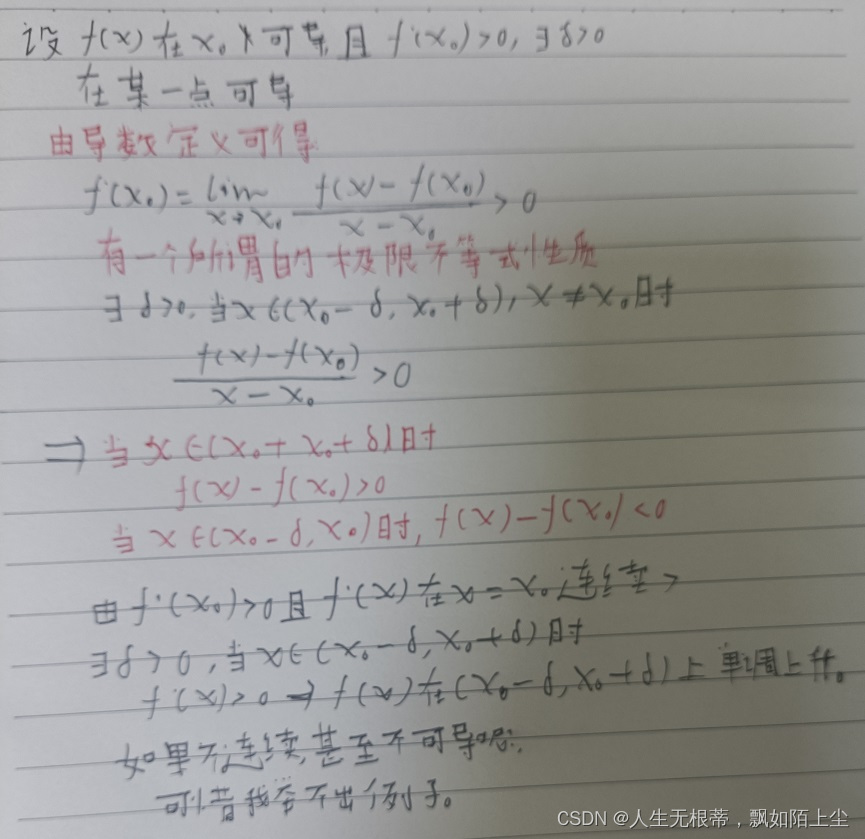 设 f(x) 在 x₀ 处可导, 且 f'(x₀)>0, ∃δ>0
在某一点可导
由导数定义可得
f'(x₀)=lim x→x₀ (f(x)-f(x₀))/(x-x₀) >0
有一个所谓的极限不等式性质
∃δ>0, 当x∈(x₀-δ, x₀+δ), x≠x₀时
(f(x)-f(x₀))/(x-x₀) >0
⇒ 当x∈(x₀, x₀+δ)时
f(x)-f(x₀)>0
当x∈(x₀-δ, x₀)时, f(x)-f(x₀)<0
由f'(x₀)>0且f'(x)在x=x₀连续
∃δ>0, 当x∈(x₀-δ, x₀+δ)时
f'(x)>0 → f(x)在(x₀-δ, x₀+δ)上单调上升。
如果不连续,甚至不可导呢
可惜我举不出例子。
CSDN @人生无根蒂，飘如陌上尘